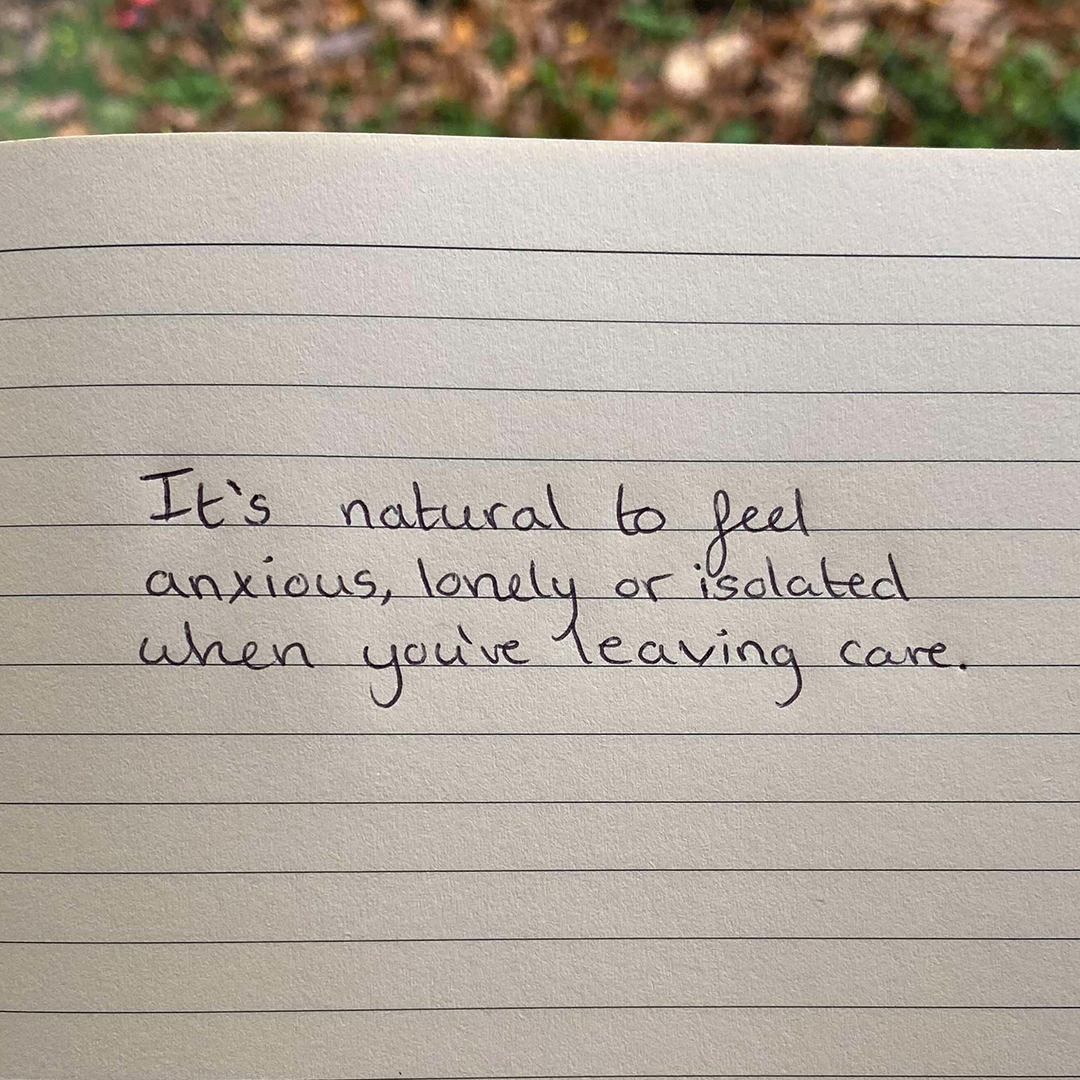 It's natural to feel
anxious, lonely or isolated
when you're leaving care.